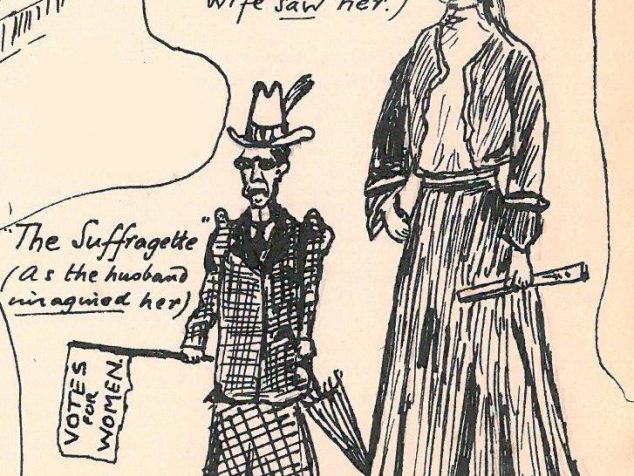 wife saw her.)
"The Suffragette"
(As the husband
imagined her)
VOTES
FOR
WOMEN.